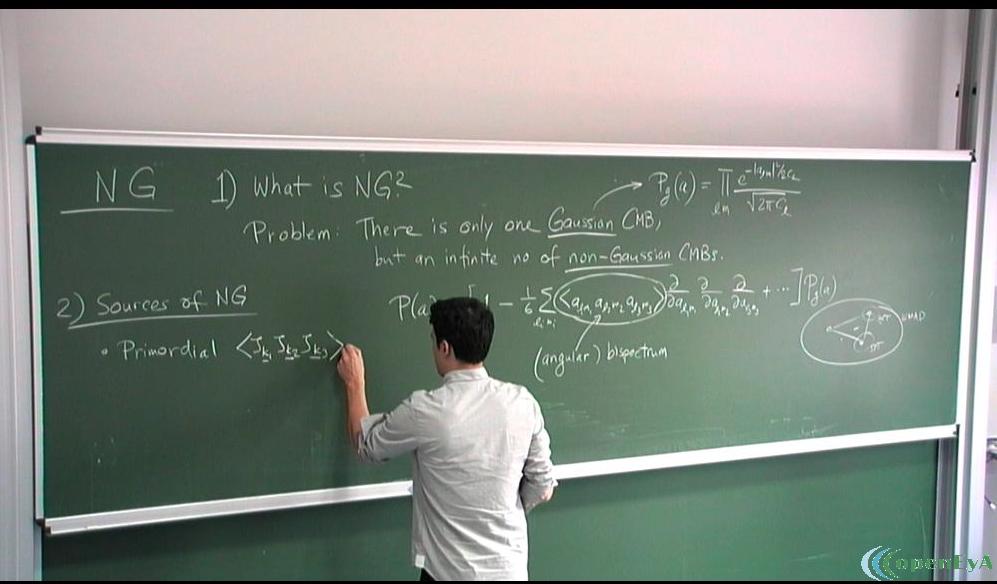 NG 1) What is NG? P_g(a) = ∏_{lm} e^{-|a_{lm}|²/2C_l} / √(2πC_l)
Problem: There is only one Gaussian CMB,
but an infinite no of non-Gaussian CMBs.
2) Sources of NG
P(a) [1 - 1/6 ∑_{l_i m_i} <a_{l_1m_1} a_{l_2m_2} a_{l_3m_3}> ∂/∂a_{l_1m_1} ∂/∂a_{l_2m_2} ∂/∂a_{l_3m_3} + ...] P_g(a)
• Primordial <ζ_{k1} ζ_{k2} ζ_{k3}>
(angular) bispectrum
WMAP
openEyA